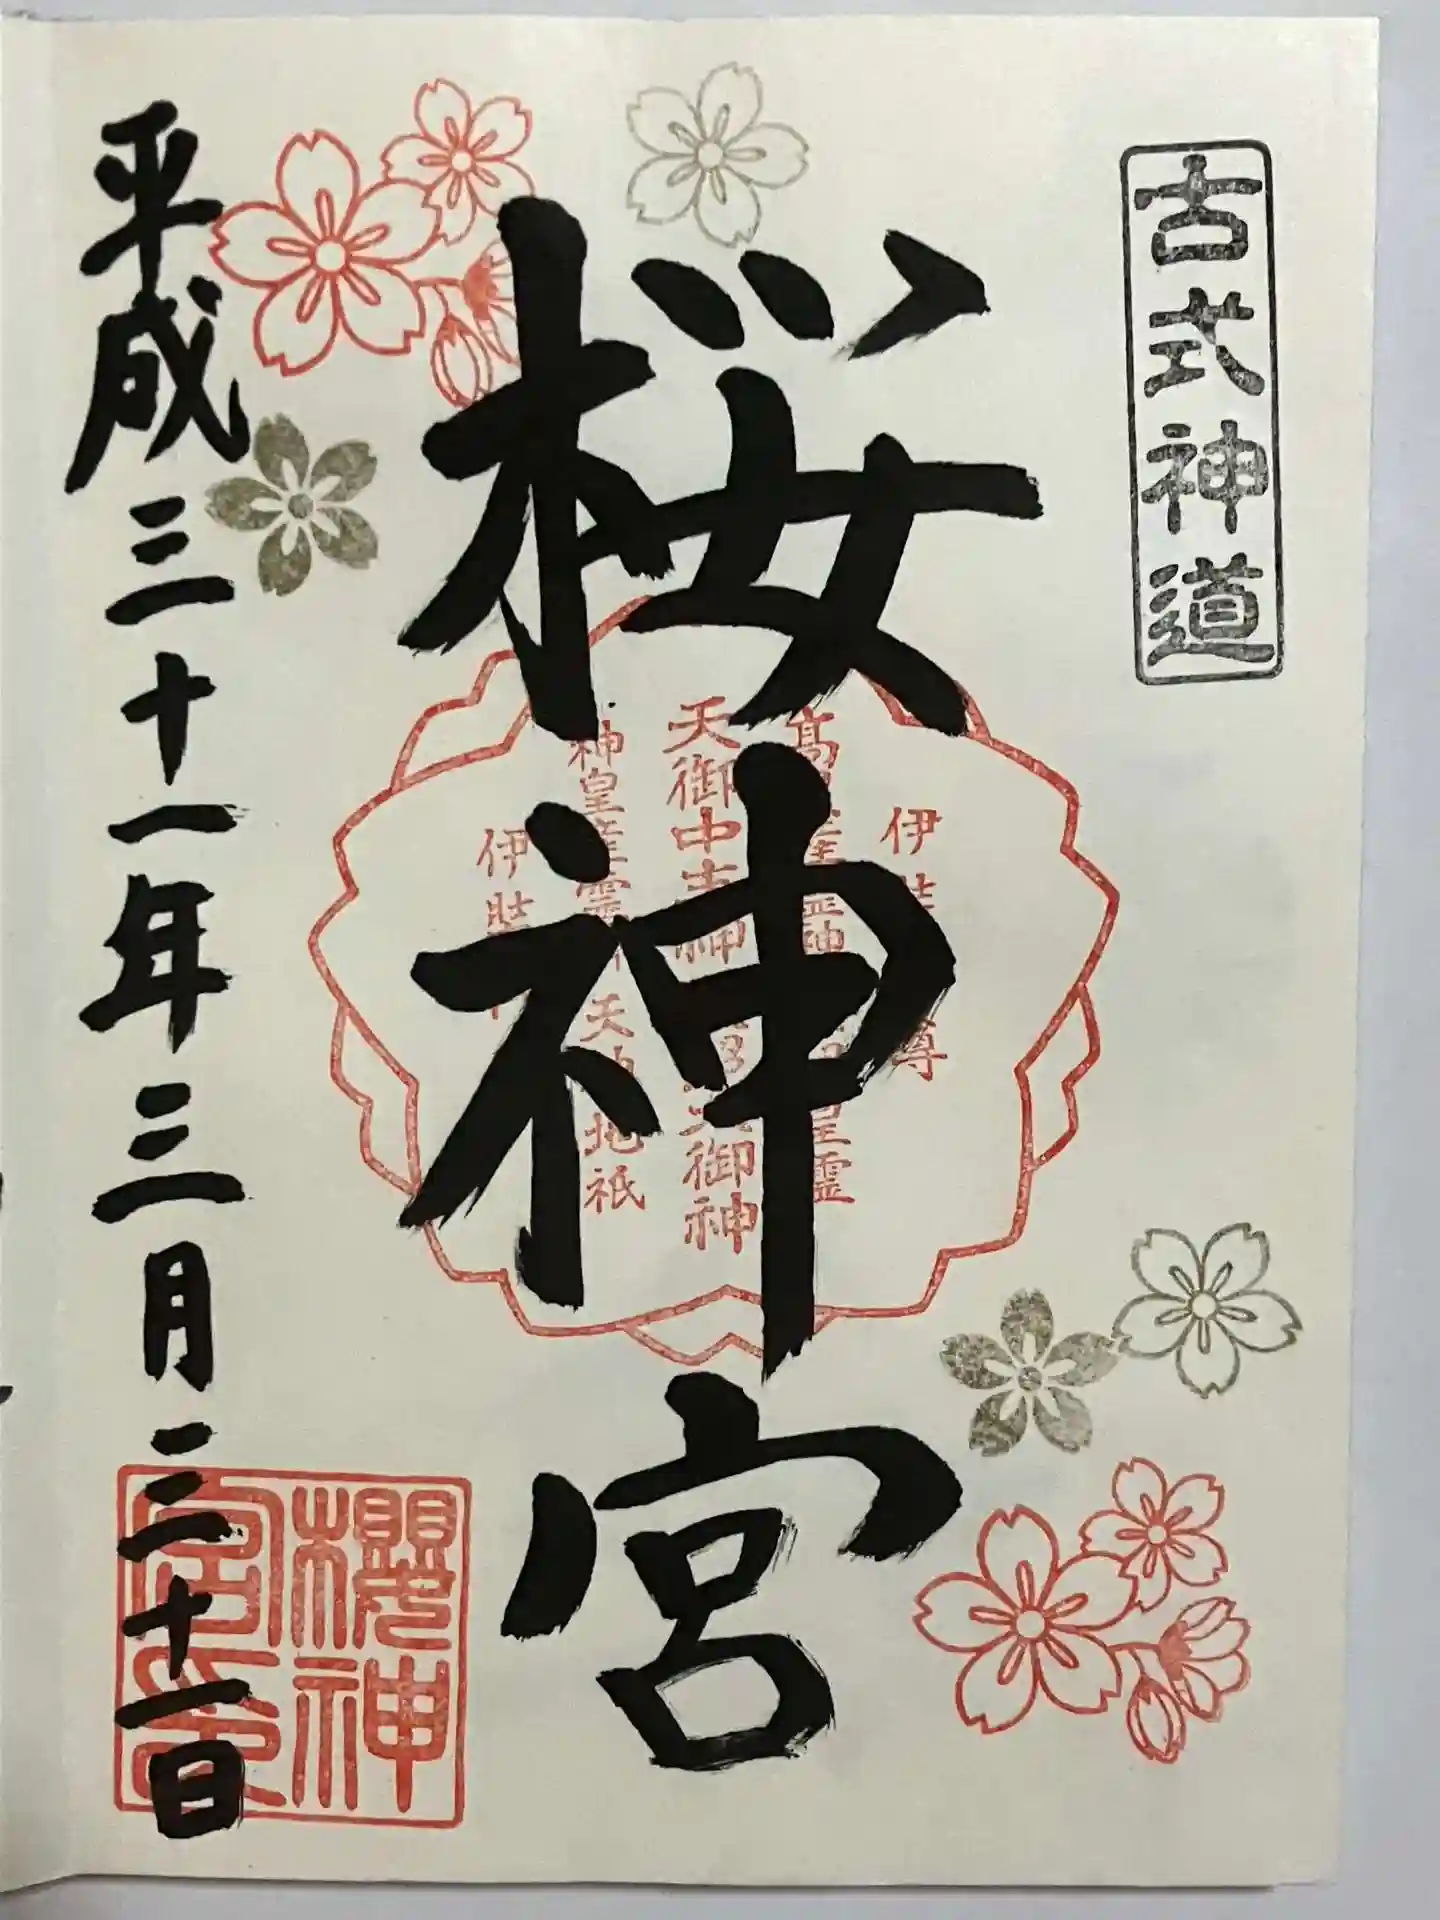 古式神道
桜神宮
伊 尊
天御中主神
天御神
神皇産霊
天 地祇
皇霊
伊
櫻神宮印
平成三十一年三月二十一日